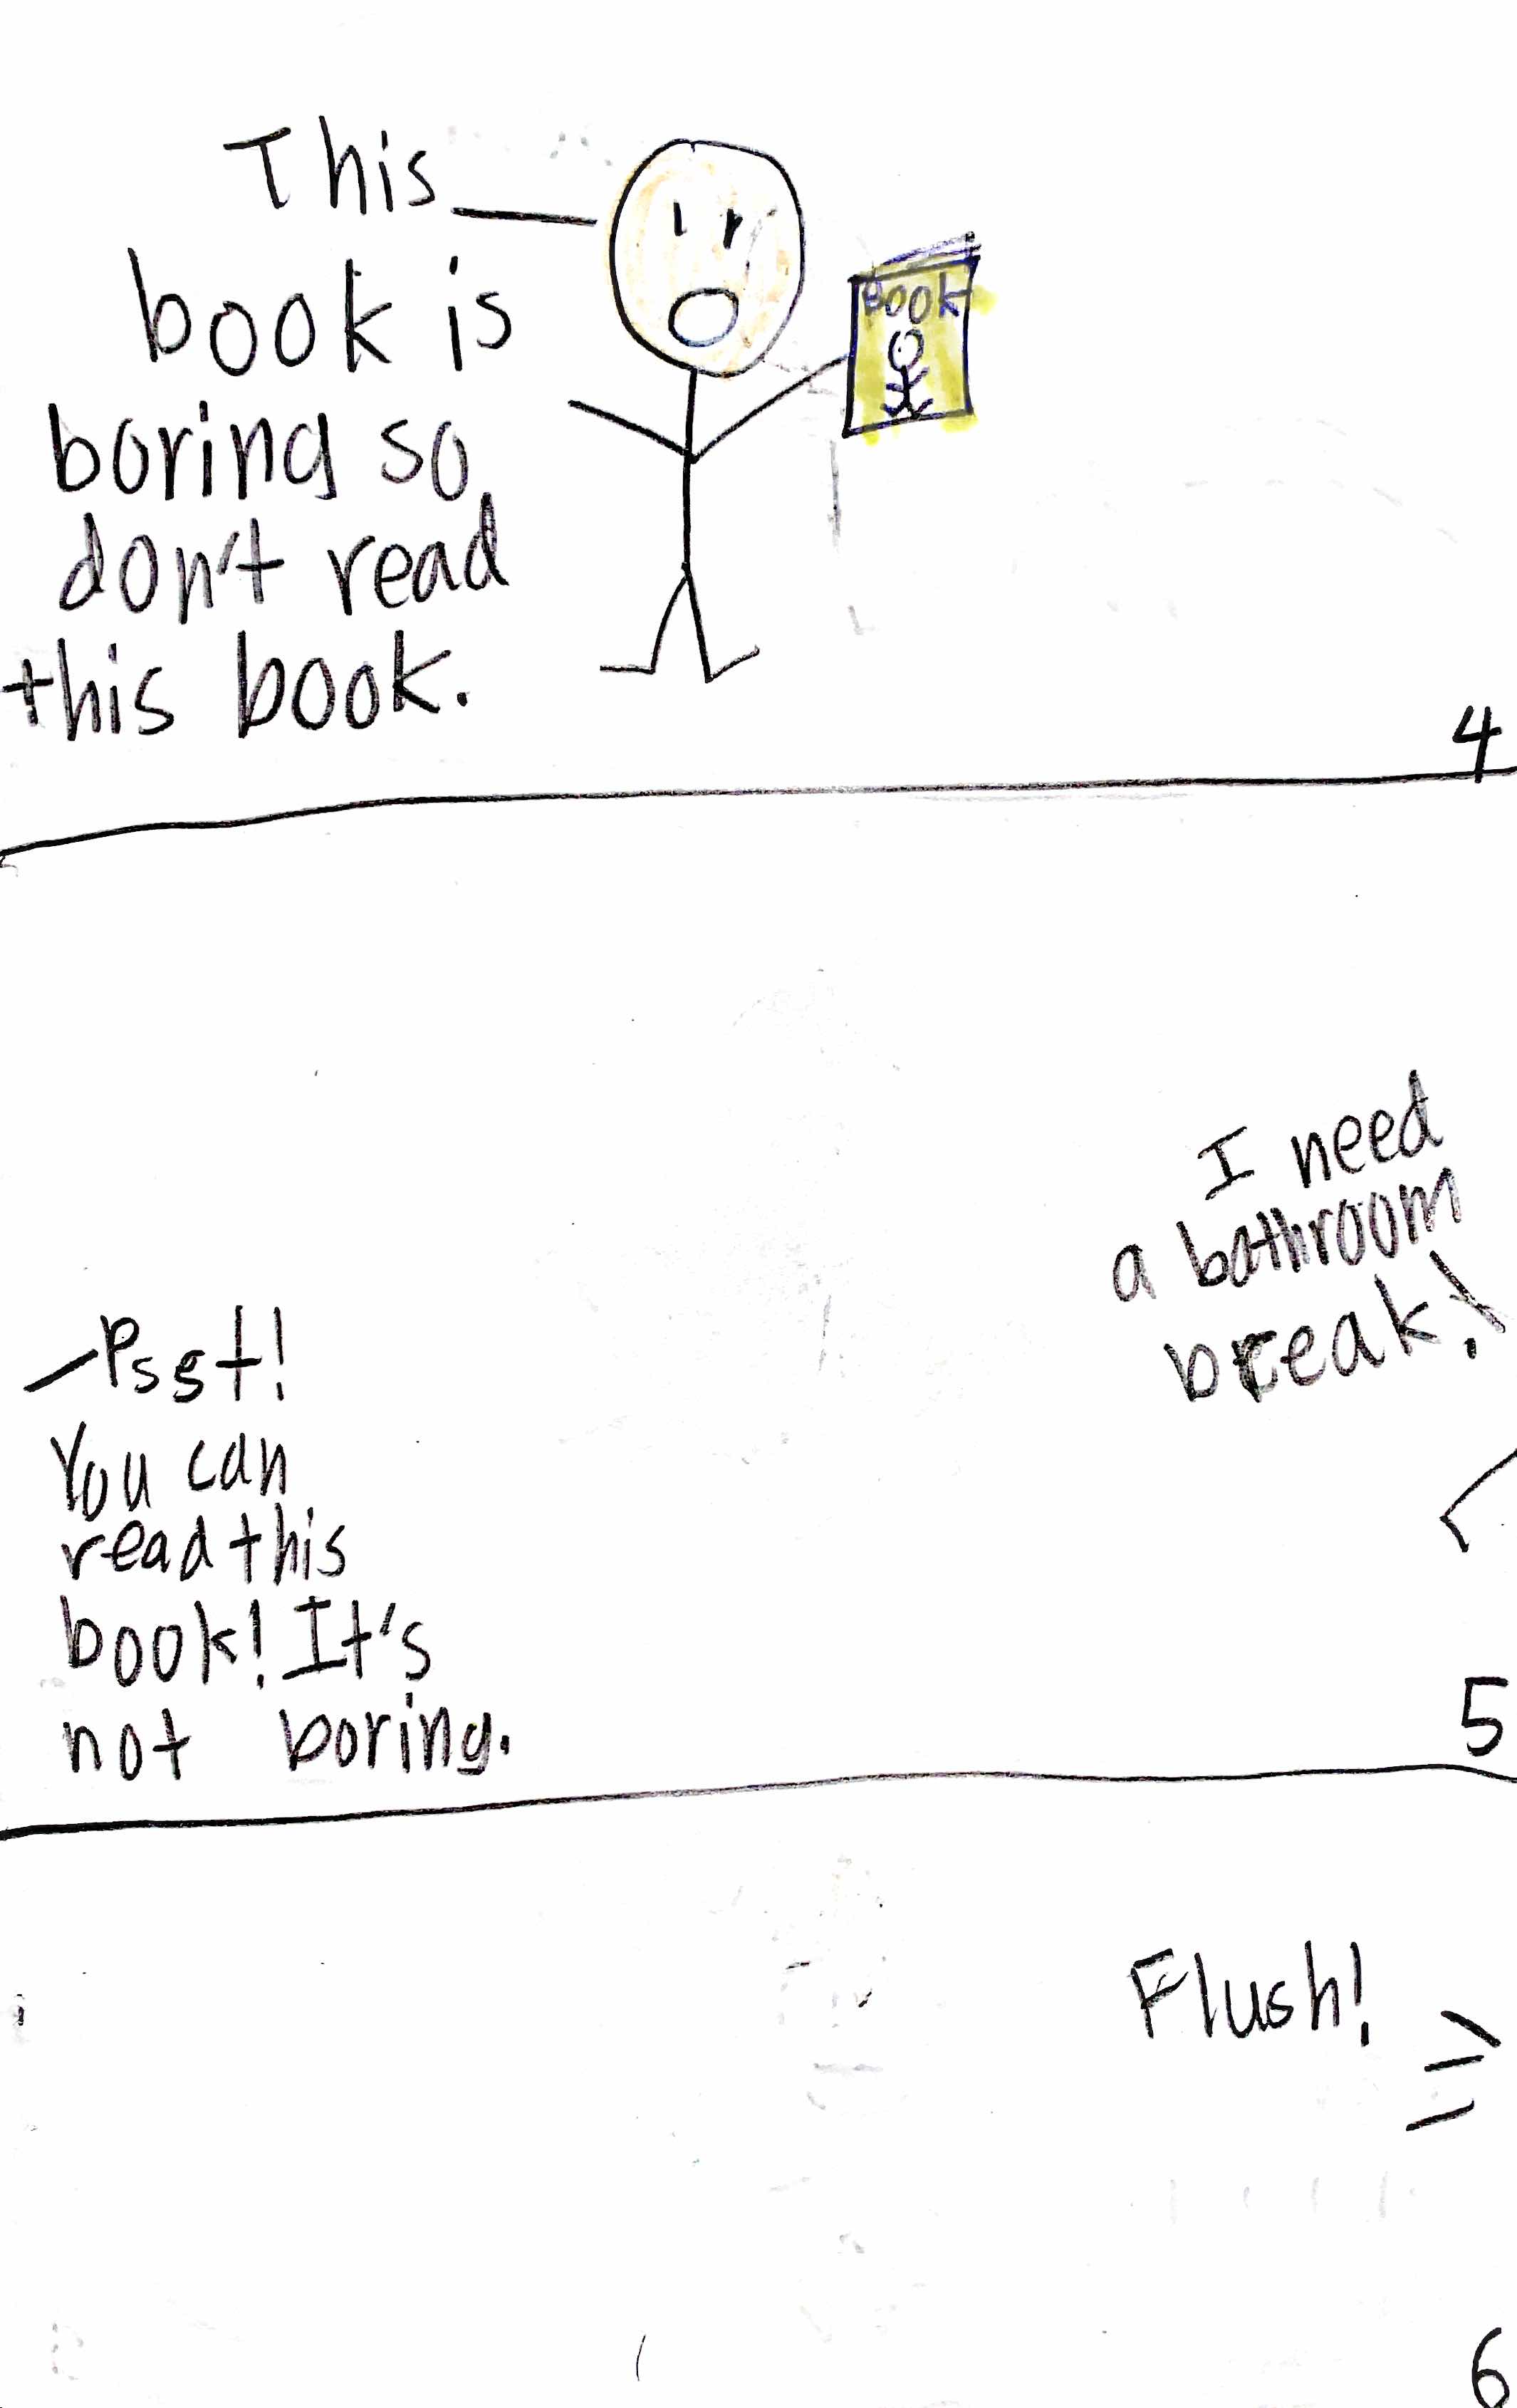 This
book is
boring so
don't read
this book.
Book
4
I need
a bathroom
break!
Psst!
You can
read this
book! It's
not boring.
5
Flush!
6